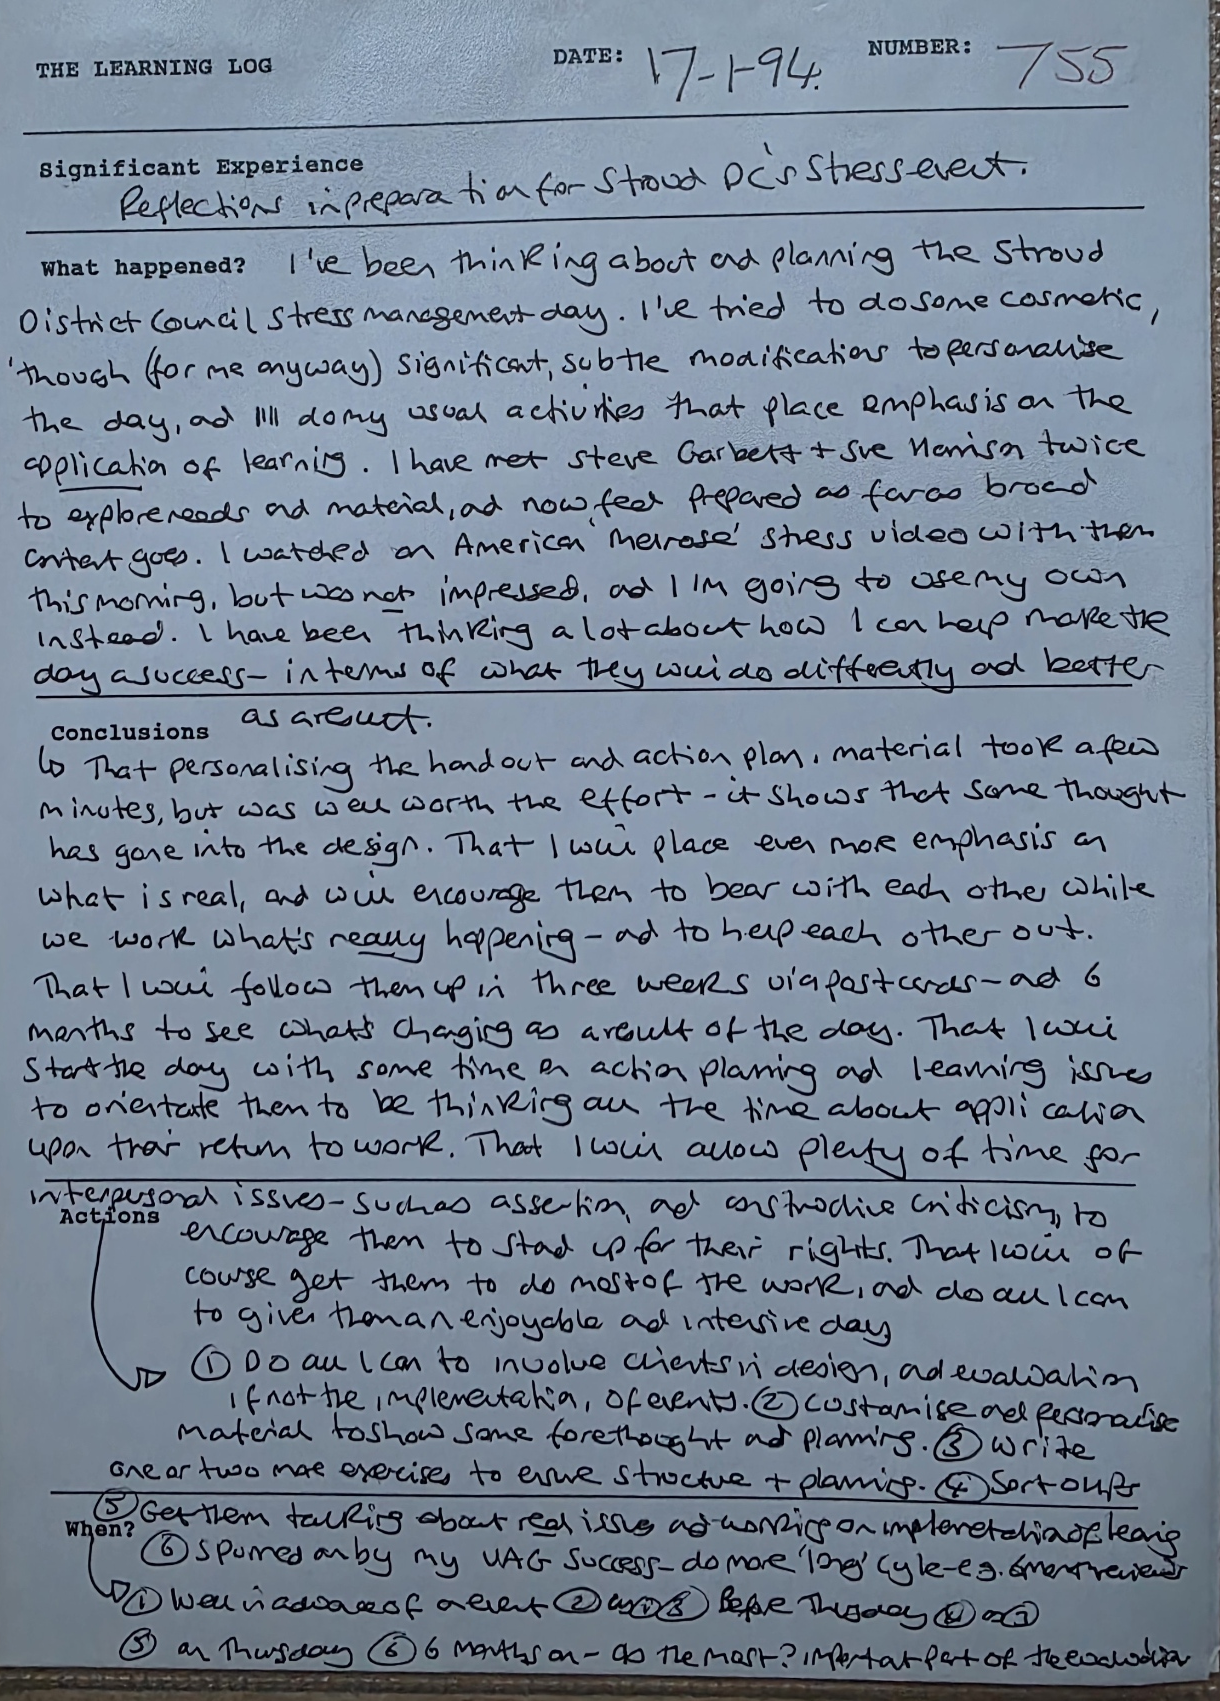 THE LEARNING LOG DATE: 17-1-94. NUMBER: 755
Significant Experience
Reflections in preparation for Stroud DC's Stress event.
What happened? I've been thinking about and planning the Stroud
District Council stress management day. I've tried to do some cosmetic,
'though (for me anyway) significant, subtle modifications to personalise
the day, and I'll do my usual activities that place emphasis on the
application of learning. I have met Steve Garbett + Sue Harrison twice
to explore needs and material, and now feel prepared as far as broad
content goes. I watched an American 'Melrose' stress video with them
this morning, but was not impressed, and I'm going to use my own
instead. I have been thinking a lot about how I can help make the
day a success - in terms of what they will do differently and better
as a result.
Conclusions
↳ That personalising the handout and action plan, material took a few
minutes, but was well worth the effort - it shows that some thought
has gone into the design. That I will place even more emphasis on
what is real, and will encourage them to bear with each other while
we work what's really happening - and to help each other out.
That I will follow them up in three weeks via postcards - and 6
months to see what's changing as a result of the day. That I will
start the day with some time on action planning and learning issues
to orientate them to be thinking all the time about application
upon their return to work. That I will allow plenty of time for
interpersonal issues - such as assertion, and constructive criticism, to
Actions
encourage them to stand up for their rights. That I will of
course get them to do most of the work, and do all I can
to give them an enjoyable and intensive day
① Do all I can to involve clients in design, and evaluation
if not the implementation, of events. ② Customise and personalise
material to show some forethought and planning. ③ Write
one or two more exercises to ensure structure + planning. ④ Sort out
⑤ Get them talking about real issues and working on implementation of learning
When?
⑥ Spurred on by my UAG success - do more 'long' cycle - e.g. 6 month reviews
① Well in advance of an event ② and ③ Before Thursday ④
⑤ on Thursday ⑥ 6 months on - as the most? important part of the evaluation